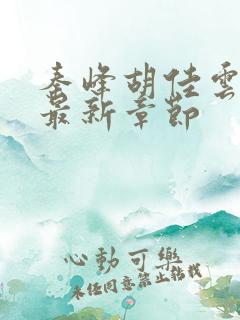 秦峰胡佳雲
最新章節
心動可樂
未经同意禁止转载